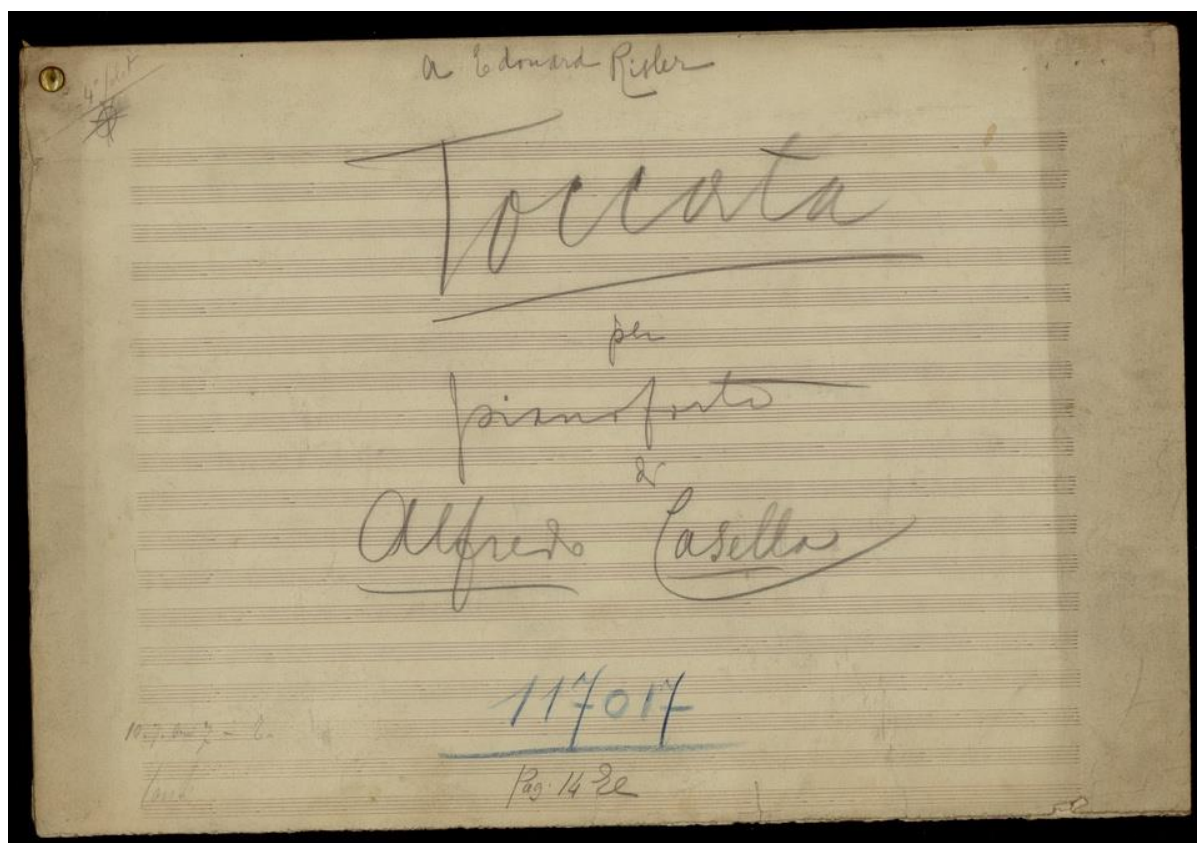 a Edouard Risler
Toccata
per
pianoforte
di
Alfredo Casella
117017
Pag. 14